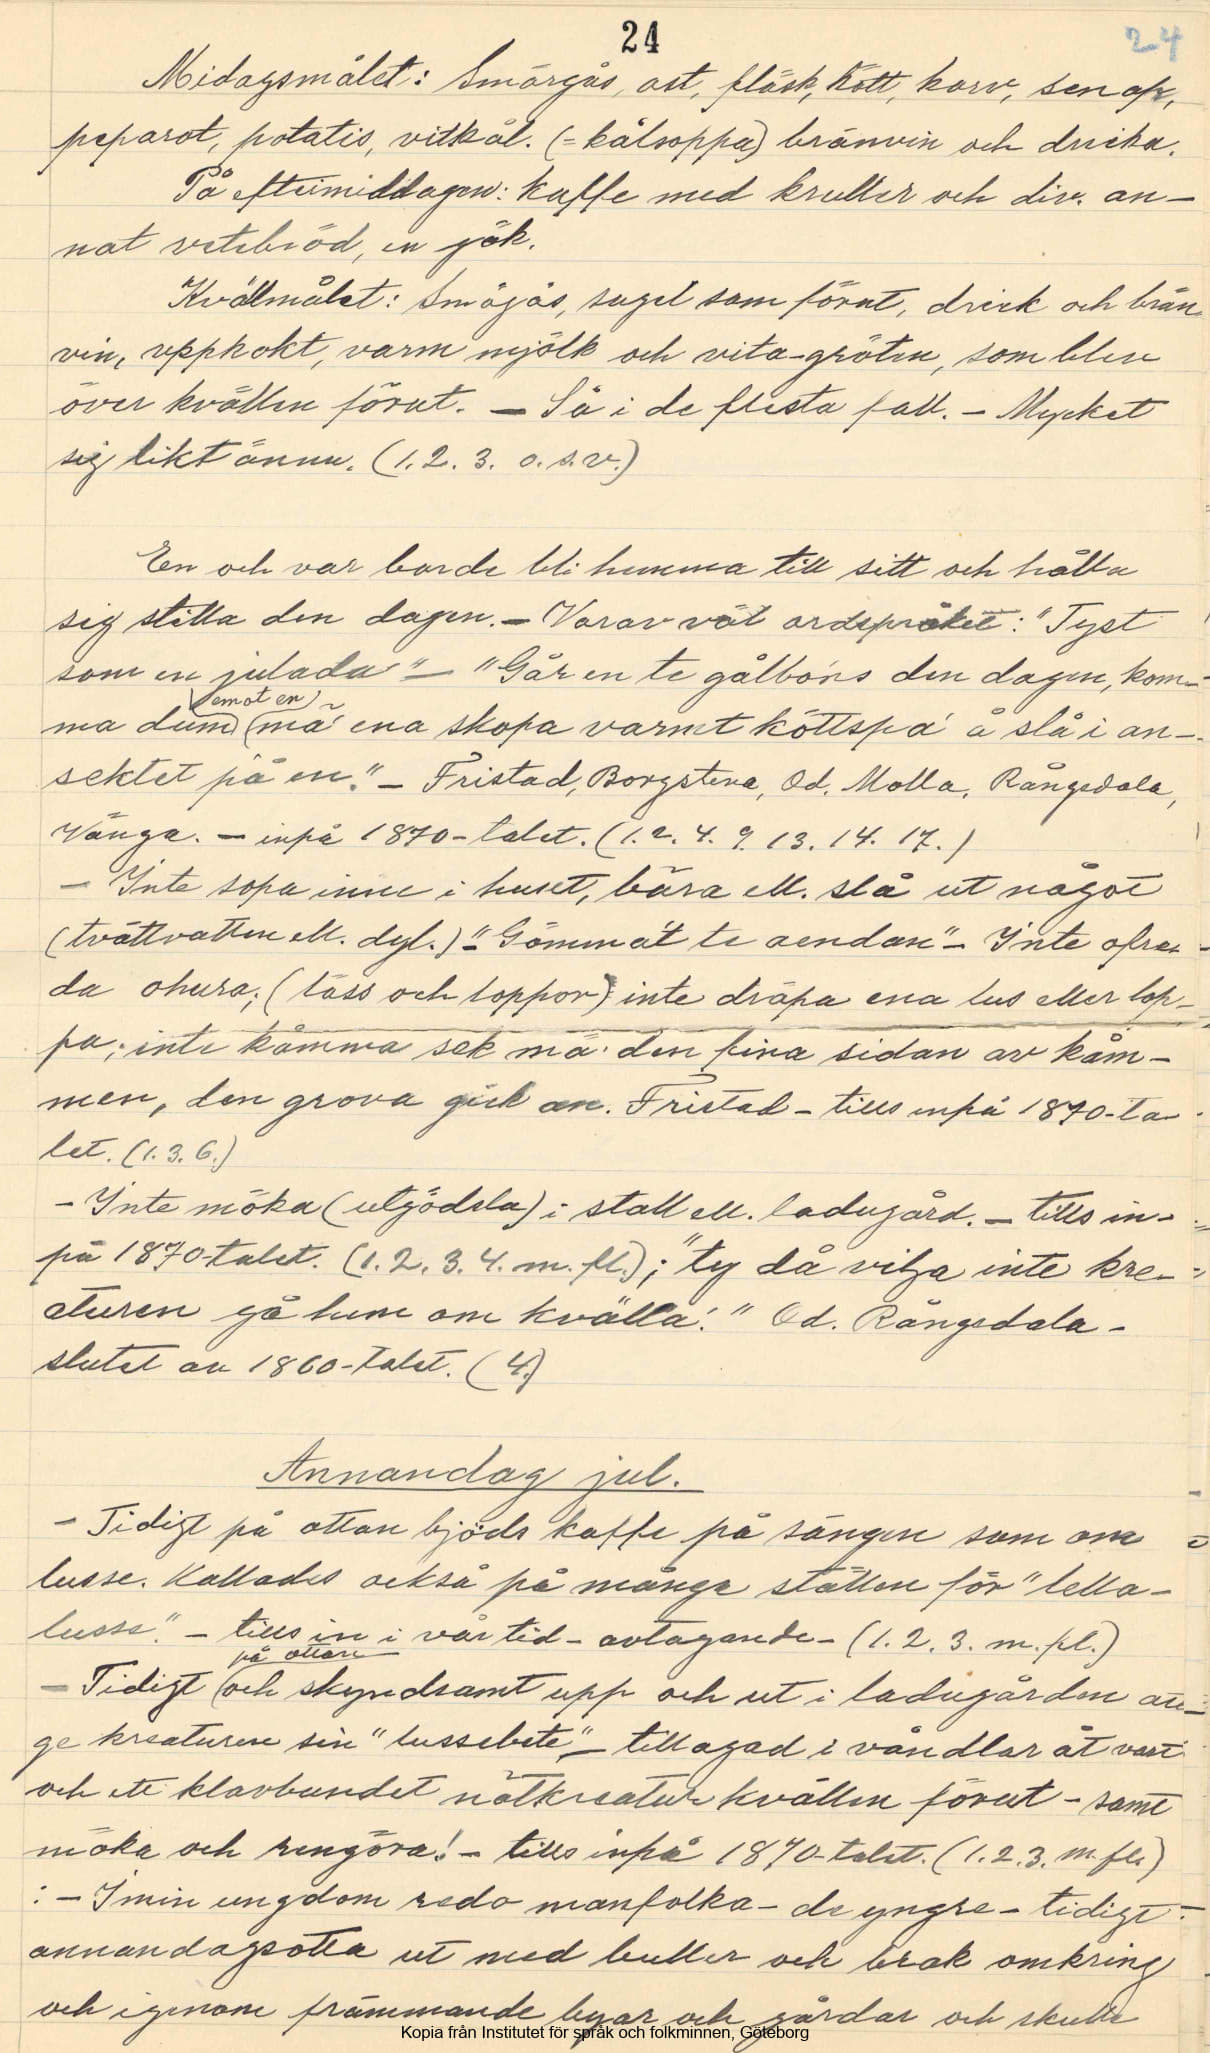 24
24
Midagsmålet: Smörgås, ost, fläsk, kött, korv, senap,
peparot, potatis, vitkål. (= kålsoppa) bränvin och dricka.
På eftermiddagen: kaffe med kruller och div. an-
nat vetebröd, en gök.
Kvällmålet: Smögås, sugel som förut, drick och brän
vin, uppkokt, varm mjölk och vita-gröten, som blev
över kvällen förut. – Så i de flesta fall. – Mycket
sig likt ännu. (1. 2. 3. o. s. v.)
En och var borde bli hemma till sitt och hålla
sig stilla den dagen. – Varav väl ordspråket: "Tyst
som en juladag" – "Går en te gålbôns den dagen, kom-
emot en
ma dum mä ena skopa varmt köttspa å slå i an-
sektet på en." – Fristad, Borgstena, Od, Molla, Rångedala,
Vänga. – inpå 1870-talet. (1. 2. 4. 9. 13. 14. 17.)
– Inte sopa inne i huset, bära ell. slå ut något
(tvättvatten ell. dyl.) "Gömm ät te aendan" – Inte ofre-
da ohura; (löss och loppor); inte dräpa ena lus eller lop-
pa; inte kåmma sek mä den fina sidan av kåm-
men, den grova gick an. Fristad – tills inpå 1870-ta-
let. (1. 3. 6.)
– Inte möka (utgödsla) i stall ell. ladugård. – tills in-
på 1870-talet. (1. 2. 3. 4. m. fl.); "ty då vilja inte kre-
aturen gå hem om kvälla." Od. Rångedala –
slutet av 1860-talet. (4.)
Annandag jul.
– Tidigt på ottan bjöds kaffe på sängen som om
lusse. Kallades också på många ställen för "lella-
lusse". – tills in i vår tid – avtagande – (1. 2. 3. m. fl.)
på ottan
– Tidigt och skyndsamt upp och ut i ladugården att
ge kreaturen sin "lussebete", – tillagad i våndlar åt vart
och ett klavbundet nötkreatur kvällen förut – samt
möka och rengöra! – tills inpå 1870-talet. (1. 2. 3. m. fl.)
: – I min ungdom redo manfolka – de yngre – tidigt
annandagsotta ut med buller och brak omkring
och igenom främmande byar och gårdar och skulle
Kopia från Institutet för språk och folkminnen, Göteborg